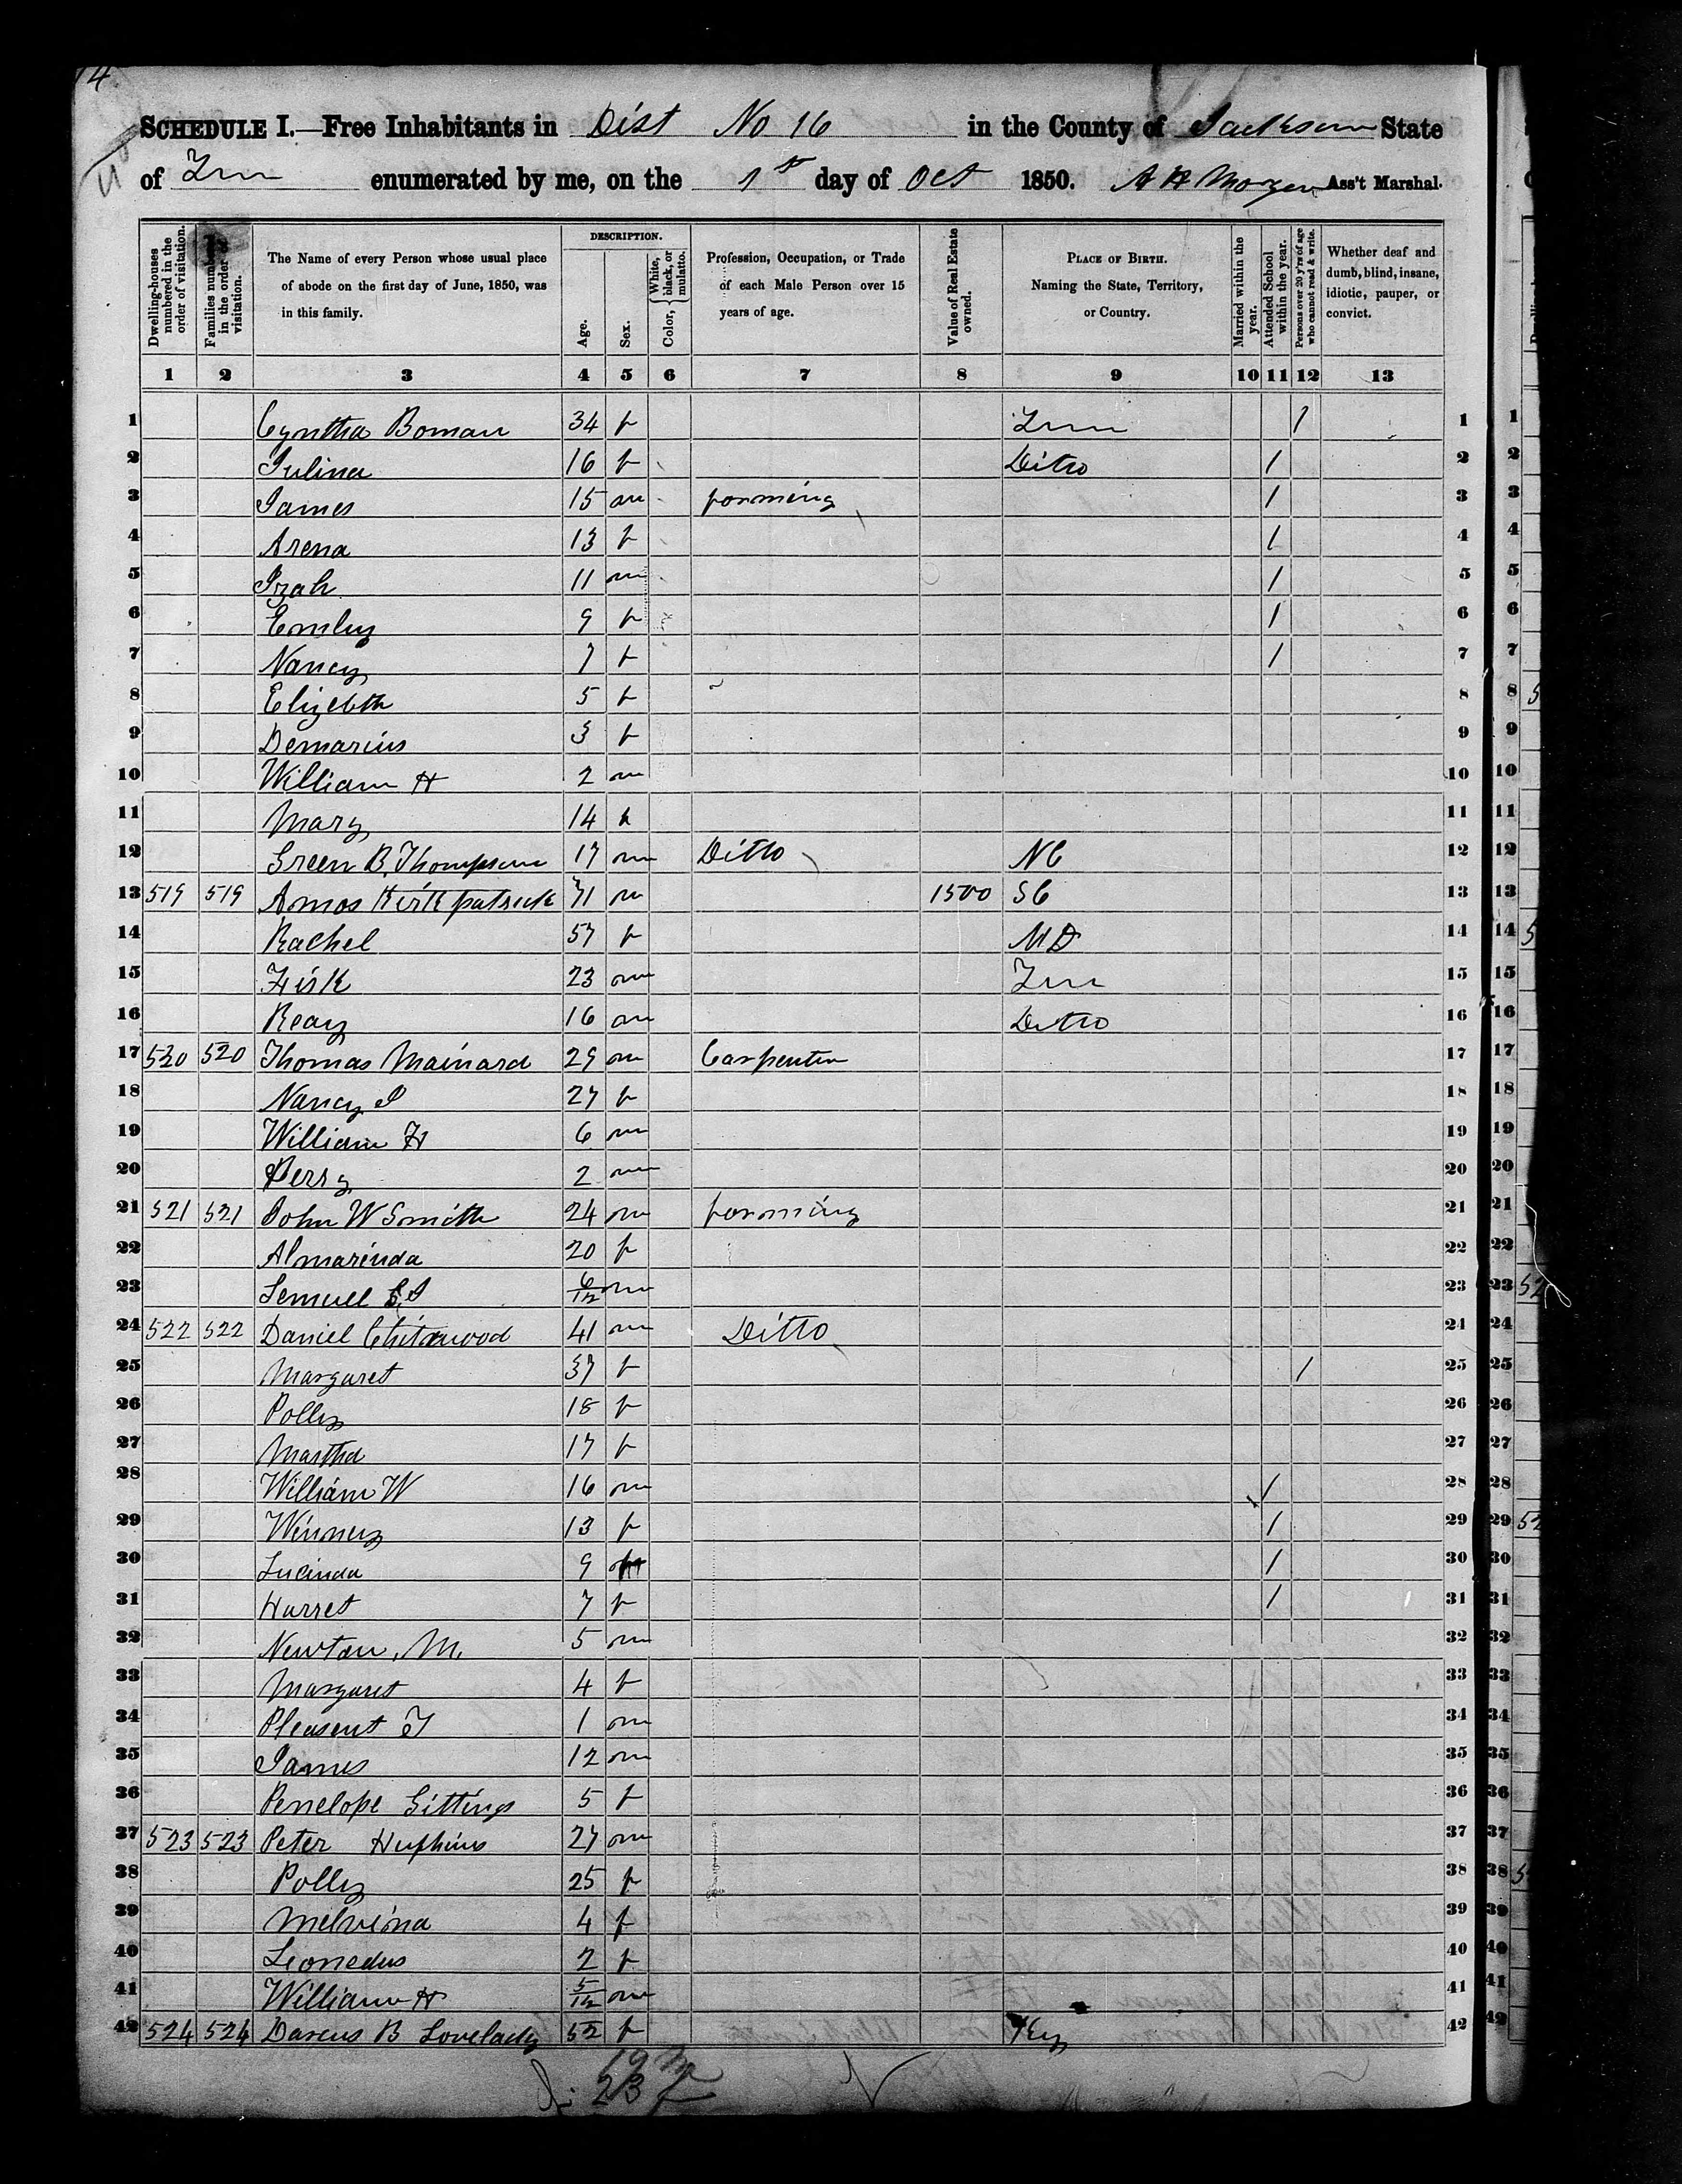 14
SCHEDULE I.—Free Inhabitants in Dist No 16 in the County of Jackson State
of Tenn enumerated by me, on the 1st day of Oct 1850. A H Morgan Ass't Marshal.
Dwelling-houses numbered in the order of visitation.
Families numbered in the order of visitation.
The Name of every Person whose usual place of abode on the first day of June, 1850, was in this family.
DESCRIPTION.
Age.
Sex.
Color, { White, black, or mulatto.
Profession, Occupation, or Trade of each Male Person over 15 years of age.
Value of Real Estate owned.
PLACE OF BIRTH. Naming the State, Territory, or Country.
Married within the year.
Attended School within the year.
Persons over 20 y'rs of age who cannot read & write.
Whether deaf and dumb, blind, insane, idiotic, pauper, or convict.
1 2 3 4 5 6 7 8 9 10 11 12 13
1 Cyntha Boman 34 f Tenn 1 1
2 Julina 16 f Ditto 1 2
3 James 15 m farming 1 3
4 Arena 13 f 1 4
5 Izah 11 m 1 5
6 Emley 9 f 1 6
7 Nancy 7 f 1 7
8 Elizebth 5 f 8
9 Demarius 3 f 9
10 William H 2 m 10
11 Mary 14 f 11
12 Green B. Thompson 17 m Ditto NC 12
13 519 519 Amos Kirkpatrick 71 m 1500 SC 13
14 Rachel 57 f MD 14
15 Fisk 23 m Tenn 15
16 Reay 16 m Ditto 16
17 520 520 Thomas Mainard 29 m Carpenter 17
18 Nancy J 27 f 18
19 William H 6 m 19
20 Perry 2 m 20
21 521 521 John W Smith 24 m farming 21
22 Almarinda 20 f 22
23 Lemuel S. J 6/12 m 23
24 522 522 Daniel Chitawood 41 m Ditto 24
25 Margaret 37 f 1 25
26 Polly 18 f 26
27 Martha 17 f 27
28 William W 16 m 1 28
29 Winney 13 f 1 29
30 Lucinda 9 f 1 30
31 Harret 7 f 1 31
32 Newton. M. 5 m 32
33 Margaret 4 f 33
34 Pleasent T 1 m 34
35 James 12 m 35
36 Penelope Gittings 5 f 36
37 523 523 Peter Hufhins 27 m 37
38 Polly 25 f 38
39 Melvina 4 f 39
40 Leonedus 2 f 40
41 William H 5/12 m 41
42 524 524 Darcus B Lovelady 52 f Ky 42
19 m
23 f